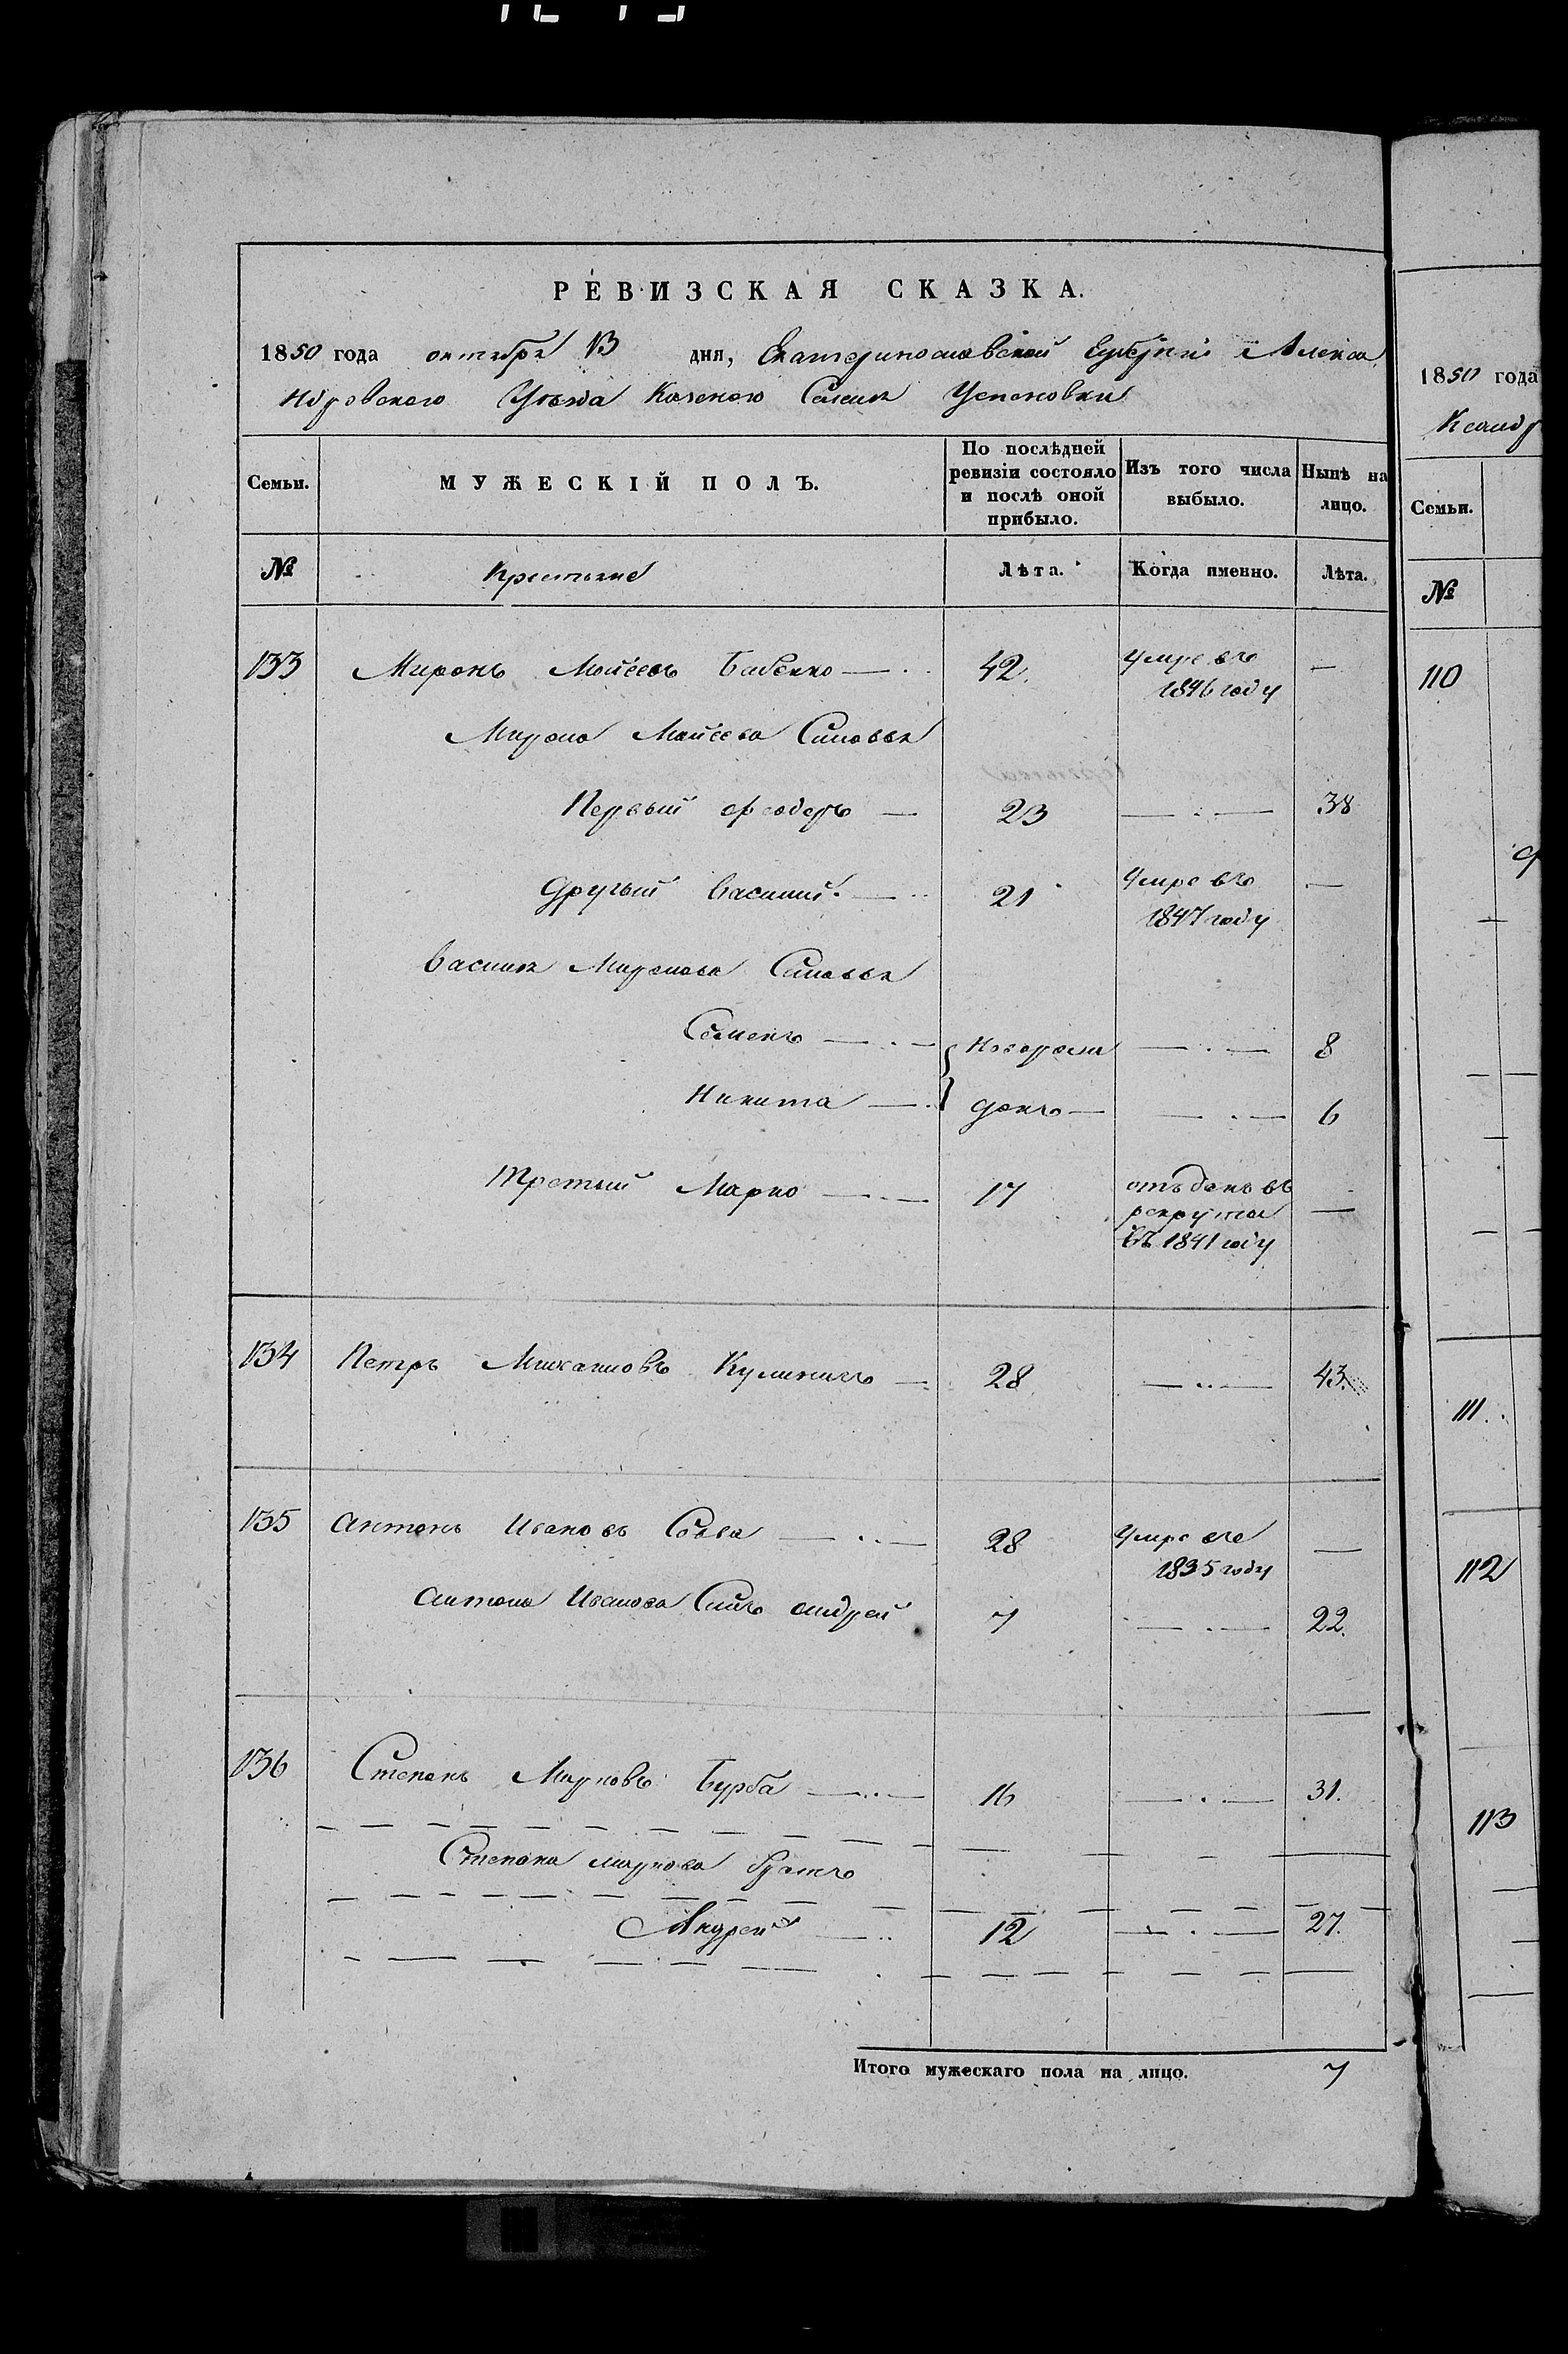 РЕВИЗСКАЯ СКАЗКА.
1850 года октября 13 дня, Екатеринославской Губернии Алекса
ндровского Уезда Казеного Селенія Успеновки
Семьи.
МУЖЕСКІЙ ПОЛЪ.
По послѣдней ревизіи состояло и послѣ оной прибыло.
Изъ того числа выбыло.
Нынѣ на лицо.
№ Крестьяне Лѣта. Когда именно. Лѣта.
133 Миронъ Мойсеевъ Бабенко 42. умре въ 1846 году —
Мирона Мойсеева Сыновья
Первый Феодоръ — 23 — 38
Другий Василий. — 21 умре въ 1847 году —
Василия Миронова Сыновья
Семенъ — новорож — 8
Никита — денъ — 6
Третий Марко — 17 отъданъ въ рекруты въ 1841 году —
134 Петръ Михаиловъ Кулиничъ — 28 — 43.
135 Антонъ Ивановъ Сова — 28 умре въ 1835 году —
Антона Иванова Сынъ Андрей 7 — 22.
136 Степанъ Марковъ Бурба — 16 — 31.
Степана Маркова братъ
Андрей — 12 — 27.
Итого мужескаго пола на лицо. 7
1850 года
Ксандр
Семьи.
№
110
111.
112
113